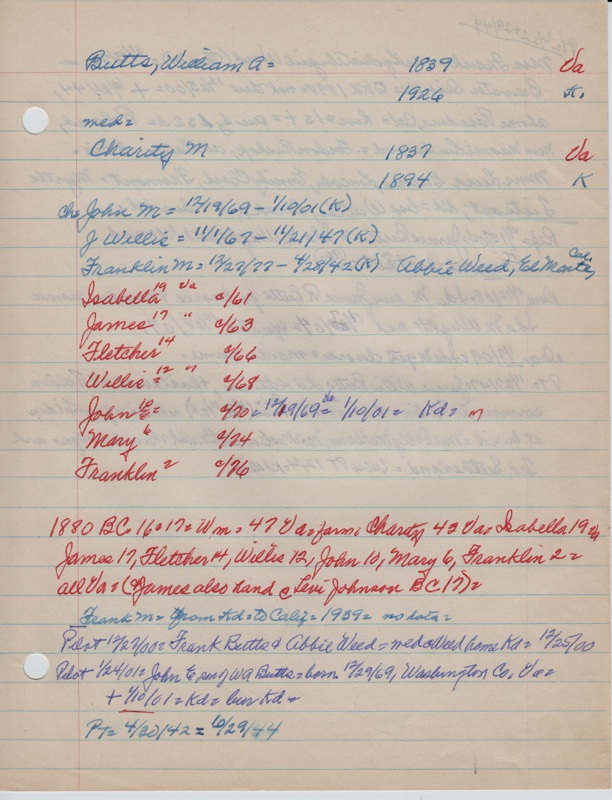 Butts, William A = 1839 Va
1926 K.
med =
Charity M 1837 Va
1894 K
ch = John M = 12/19/69 - 1/10/01 (K)
J Willie = 11/1/67 - 11/21/47 (K)
Franklin M = 12/27/77 - 4/28/42 (K) Abbie Weed, El Monte, Cal.
Isabella 19 Va c/61
James 17 " c/63
Fletcher 14 c/66
Willis = 12 " c/68
John E = 10 c/70 = 12/19/69 Va 1/10/01 = Kd = m
Mary 6 c/74
Franklin 2 c/76
1880 BC = 16 = 17 = Wm = 47 Va = farm; Charity 43 Va = Isabella 19
James 17, Fletcher 14, Willis 12, John 10, Mary 6, Franklin 2 =
all Va = (James also hand c Levi Johnson BC 17) =
Frank M = from Kd = to Calif = 1939 = no data =
Pilot 12/27/00 = Frank Butts & Abbie Weed = med @ Weed home Kd = 12/25/00
Pilot 1/24/01 = John E, son of WA Butts = born 12/29/69, Washington Co, Va =
+ 1/10/01 = Kd = bur Kd =
PT = 4/30/42 = 6/29/44